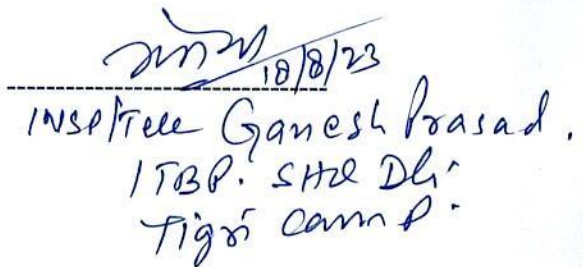 गणेश
18/8/23
INSP/Tele Ganesh Prasad.
ITBP. SHQ Dli
Tigri Camp.